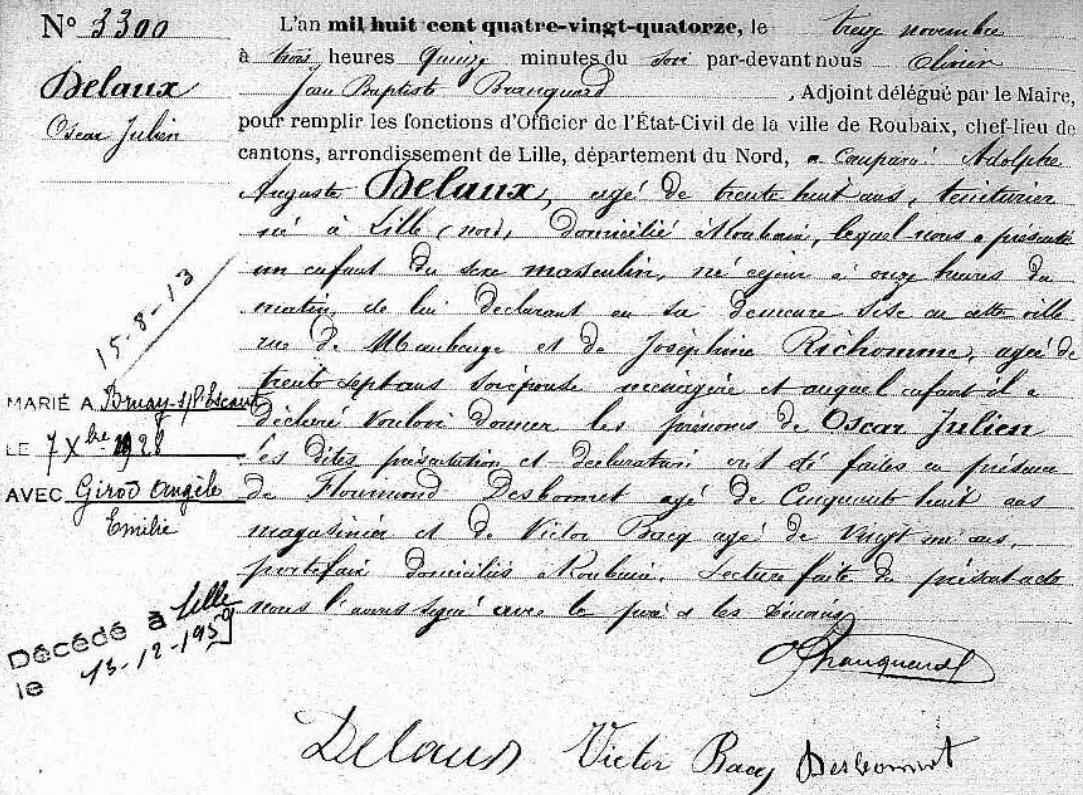 N° 3300
Delaux
Oscar Julien
L'an mil huit cent quatre-vingt-quatorze, le treize novembre
à trois heures Quinze minutes du soir par-devant nous Olivier
Jean Baptiste Branquard, Adjoint délégué par le Maire,
pour remplir les fonctions d'Officier de l'État-Civil de la ville de Roubaix, chef-lieu de
cantons, arrondissement de Lille, département du Nord, a Comparu: Adolphe
Auguste Delaux, agé de trente huit ans, teinturier
né à Lille (nord) Domicilié à Roubaix, lequel nous a présenté
un enfant du sexe masculin, né cejour à onze heures du
matin, de lui Déclarant en sa demeure sise en cette ville
rue de Maubeuge et de Joséphine Richomme, agée de
trente sept ans son épouse ménagère et auquel enfant il a
déclaré vouloir donner les prénoms de Oscar Julien
Les dites présentation et declaration ont été faites en présence
de Florimond Desbonnet agé de Cinquante huit ans
magasinier et de Victor Bacq agé de Vingt un ans,
portefaix domiciliés à Roubaix. Lecture faite du présent acte
nous l'avons signé avec le père & les témoins
15-8-13
MARIÉ A Bruay-s/l'Escaut
LE 7 Xbre 1928
AVEC Girod Angèle
Emilie
Décédé à Lille
le 13-12-1959
O Branquard
Delaux Victor Bacq Desbonnet